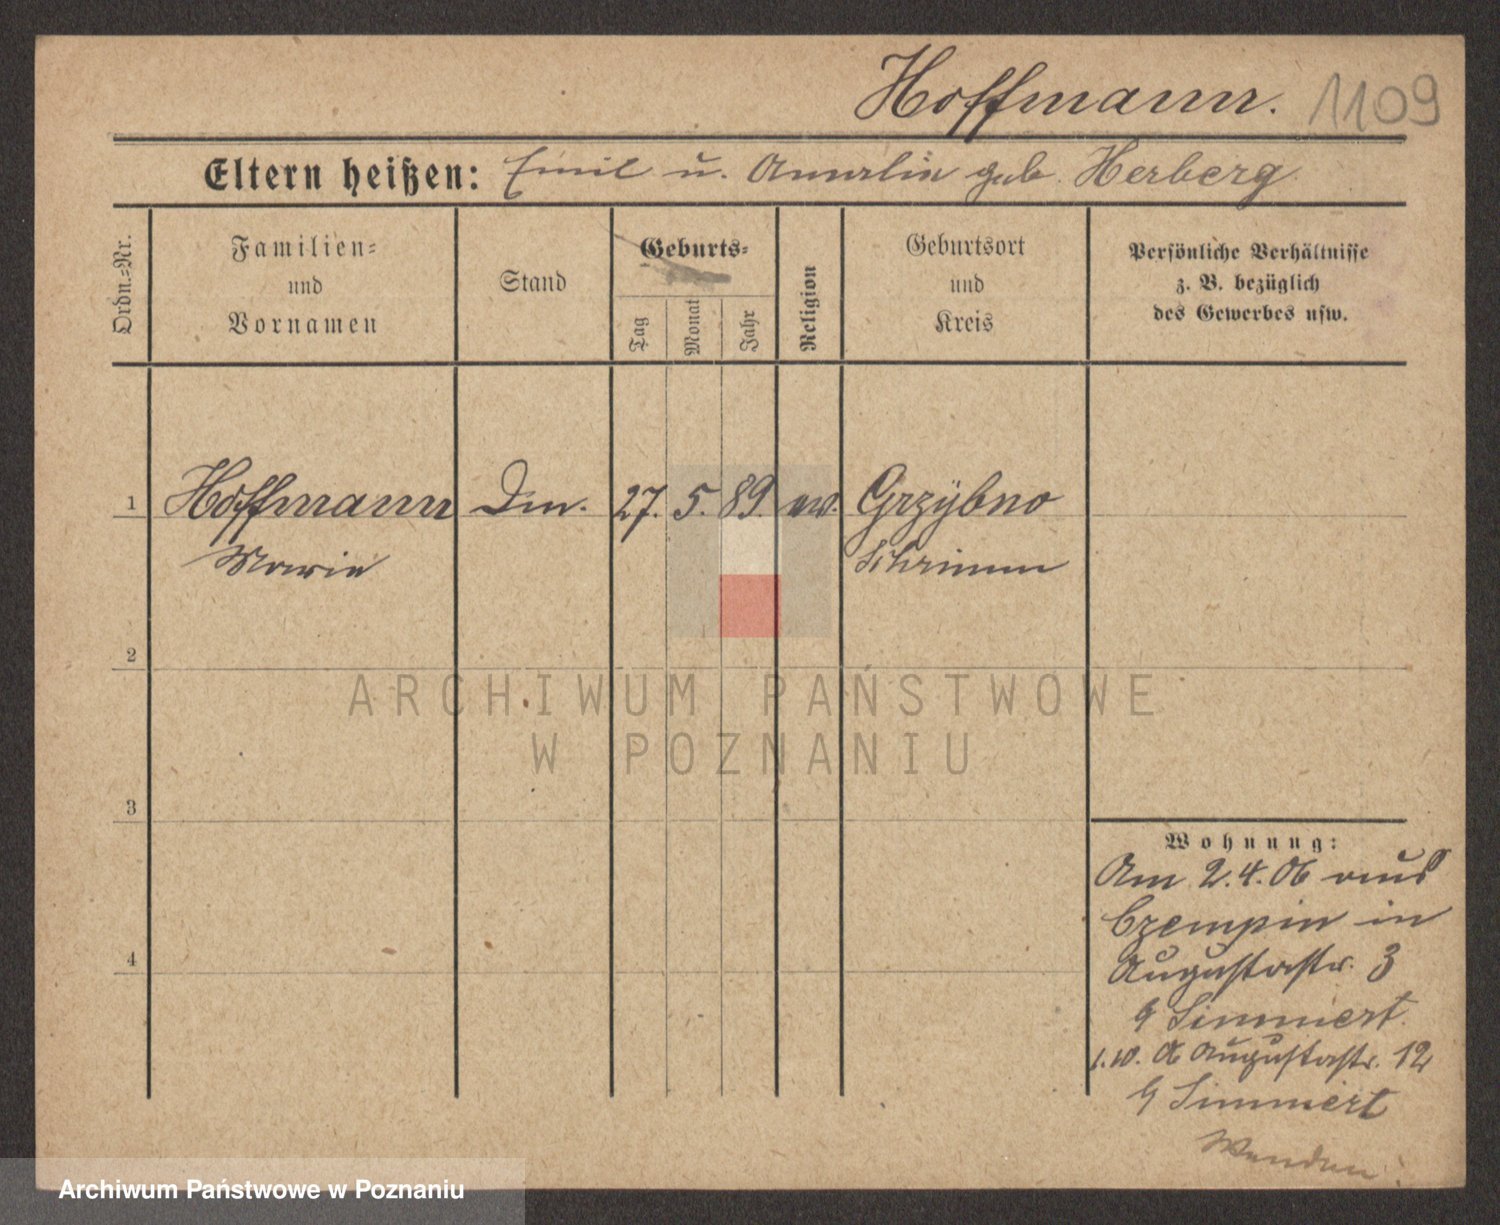 Hoffmann. 1109
Eltern heißen: Emil u. Amalie geb. Herberg
Ordn.=Nr.
Familien=
und
Vornamen
Stand
Geburts=
Tag
Monat
Jahr
Religion
Geburtsort
und
Kreis
Persönliche Verhältnisse
z. B. bezüglich
des Gewerbes usw.
1 Hoffmann Dm. 27. 5. 89. ev. Grzybno
Marie Schrimm
2
ARCHIWUM PAŃSTWOWE
W POZNANIU
3
Wohnung:
Am 2.4.06 aus
Czempin in
Augustastr. 3
4
Simmert.
1.10. 06 Augustastr. 12
Simmert
Wenden
Archiwum Państwowe w Poznaniu